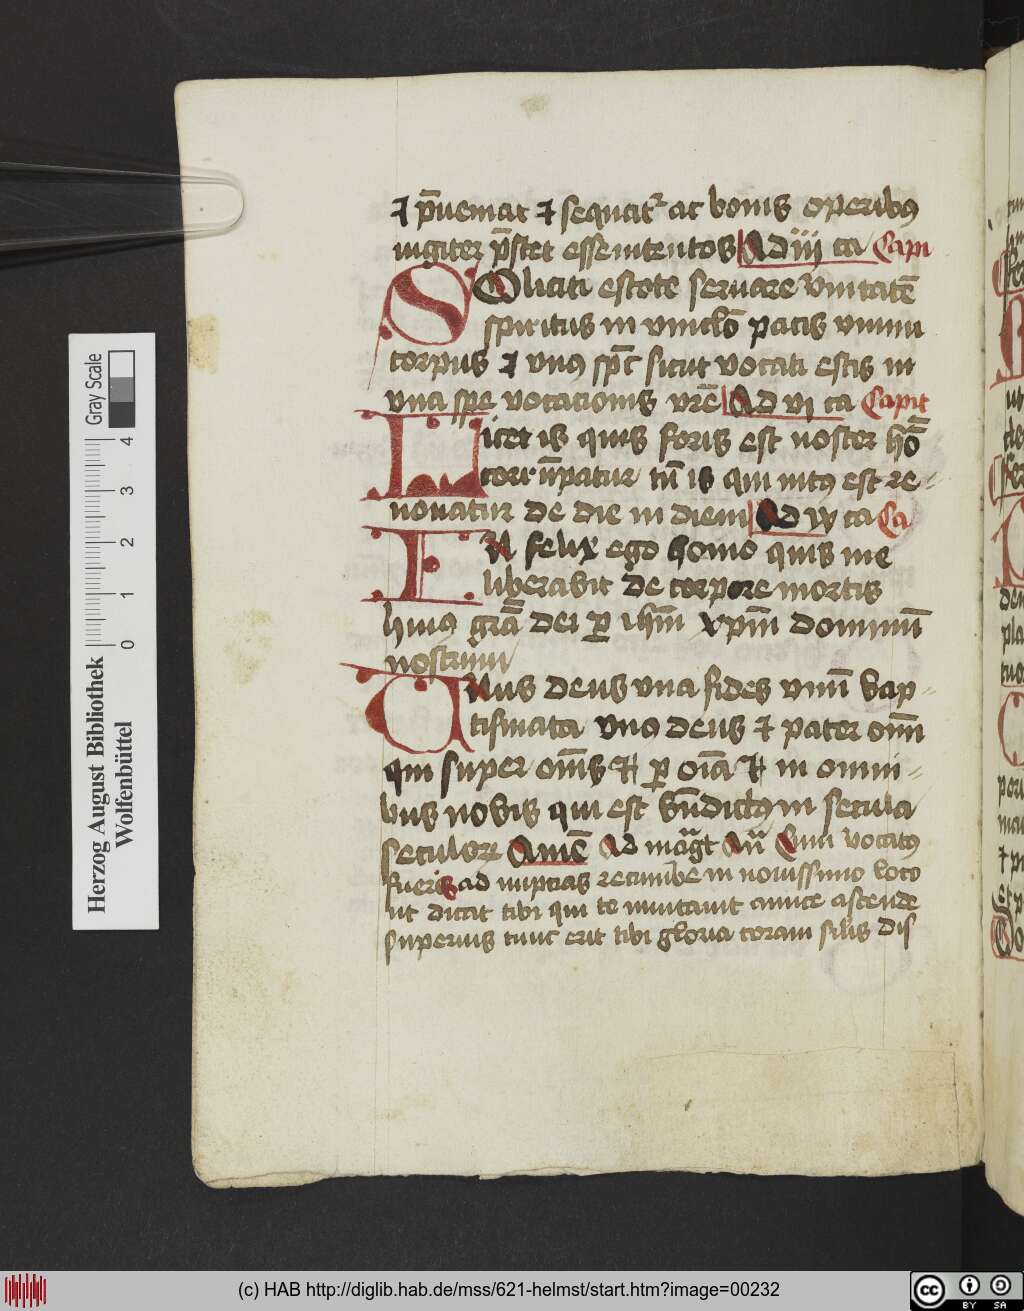 ⁊ p̄ueniat ⁊ sequat͛ ac bonis operibꝰ
iugiter p̄stet esse intentos Ad iij ca Capi
SOliciti estote seruare vnitatē
spiritus in vinclō pacis vnum
corpus ⁊ vnꝰ sp̄c sicut vocati estis in
vna spe vocationis vr̄e Ad vj ca Capit
Licet is quis foris est noster hō
corrūpatur tn̄ is qui intꝰ est re-
nouatur de die in diem Ad ix ca Ca
INfelix ego homo quis me
liberabit de corpore mortis
huiꝰ grā dei ꝑ ihm̄ xp̄m dominū
nostrum
Unus deus vna fides vnū bap-
tismata vnꝰ deus ⁊ pater om̄
qui super om̄s ⁊ ꝑ oīa ⁊ in omni-
bus nobis qui est bn̄dictꝰ in secula
seculoꝝ Amē Ad mag̅t An̄ Cum vocatꝰ
fueris ad nuptias recumbe in nouissimo loco
ut dicat tibi qui te inuitauit amice ascende
superius tunc erit tibi gloria coram silis dis
Herzog August Bibliothek
Wolfenbüttel
Gray Scale
0 1 2 3 4
(c) HAB http://diglib.hab.de/mss/621-helmst/start.htm?image=00232
cc BY SA